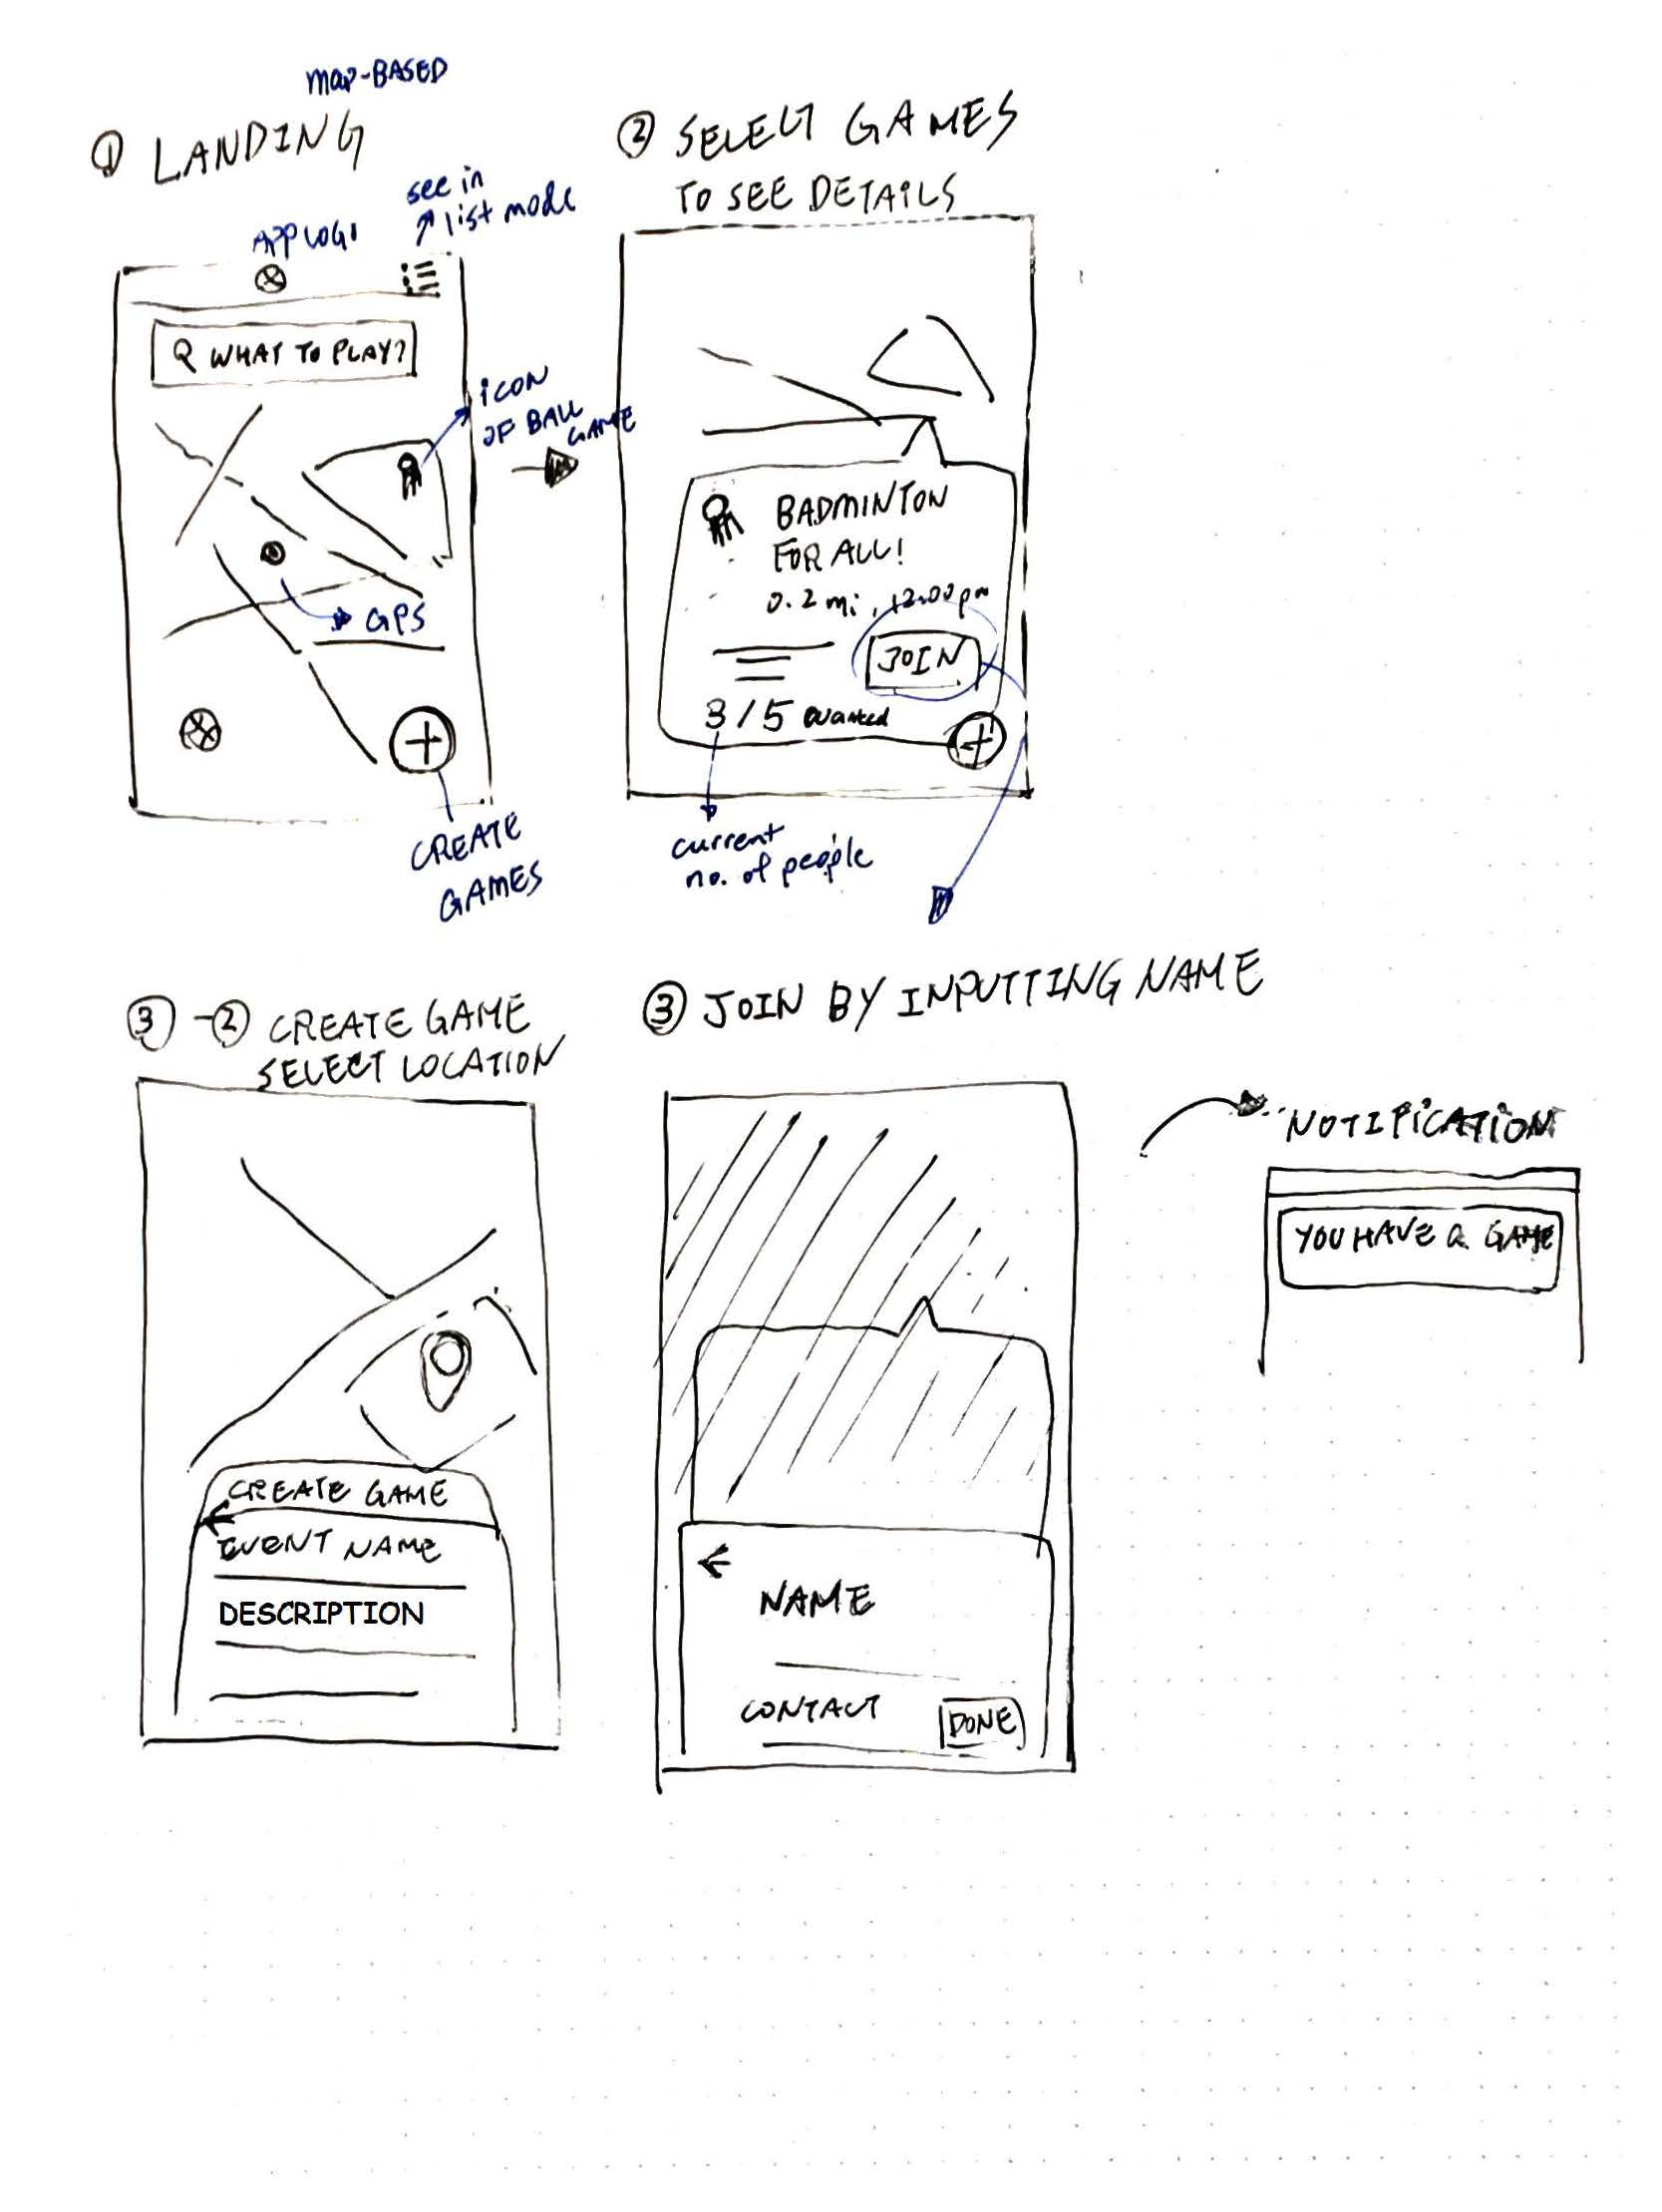 map-BASED
① LANDING
see in
list mode
APP LOGO
Q WHAT TO PLAY?
ICON
OF BALL
GAME
GPS
CREATE
GAMES
② SELECT GAMES
TO SEE DETAILS
BADMINTON
FOR ALL!
0.2 mi, 12:00pm
JOIN
3/5 wanted
current
no. of people
③-② CREATE GAME
SELECT LOCATION
CREATE GAME
EVENT NAME
DESCRIPTION
③ JOIN BY INPUTTING NAME
NAME
CONTACT
DONE
NOTIFICATION
YOU HAVE A GAME